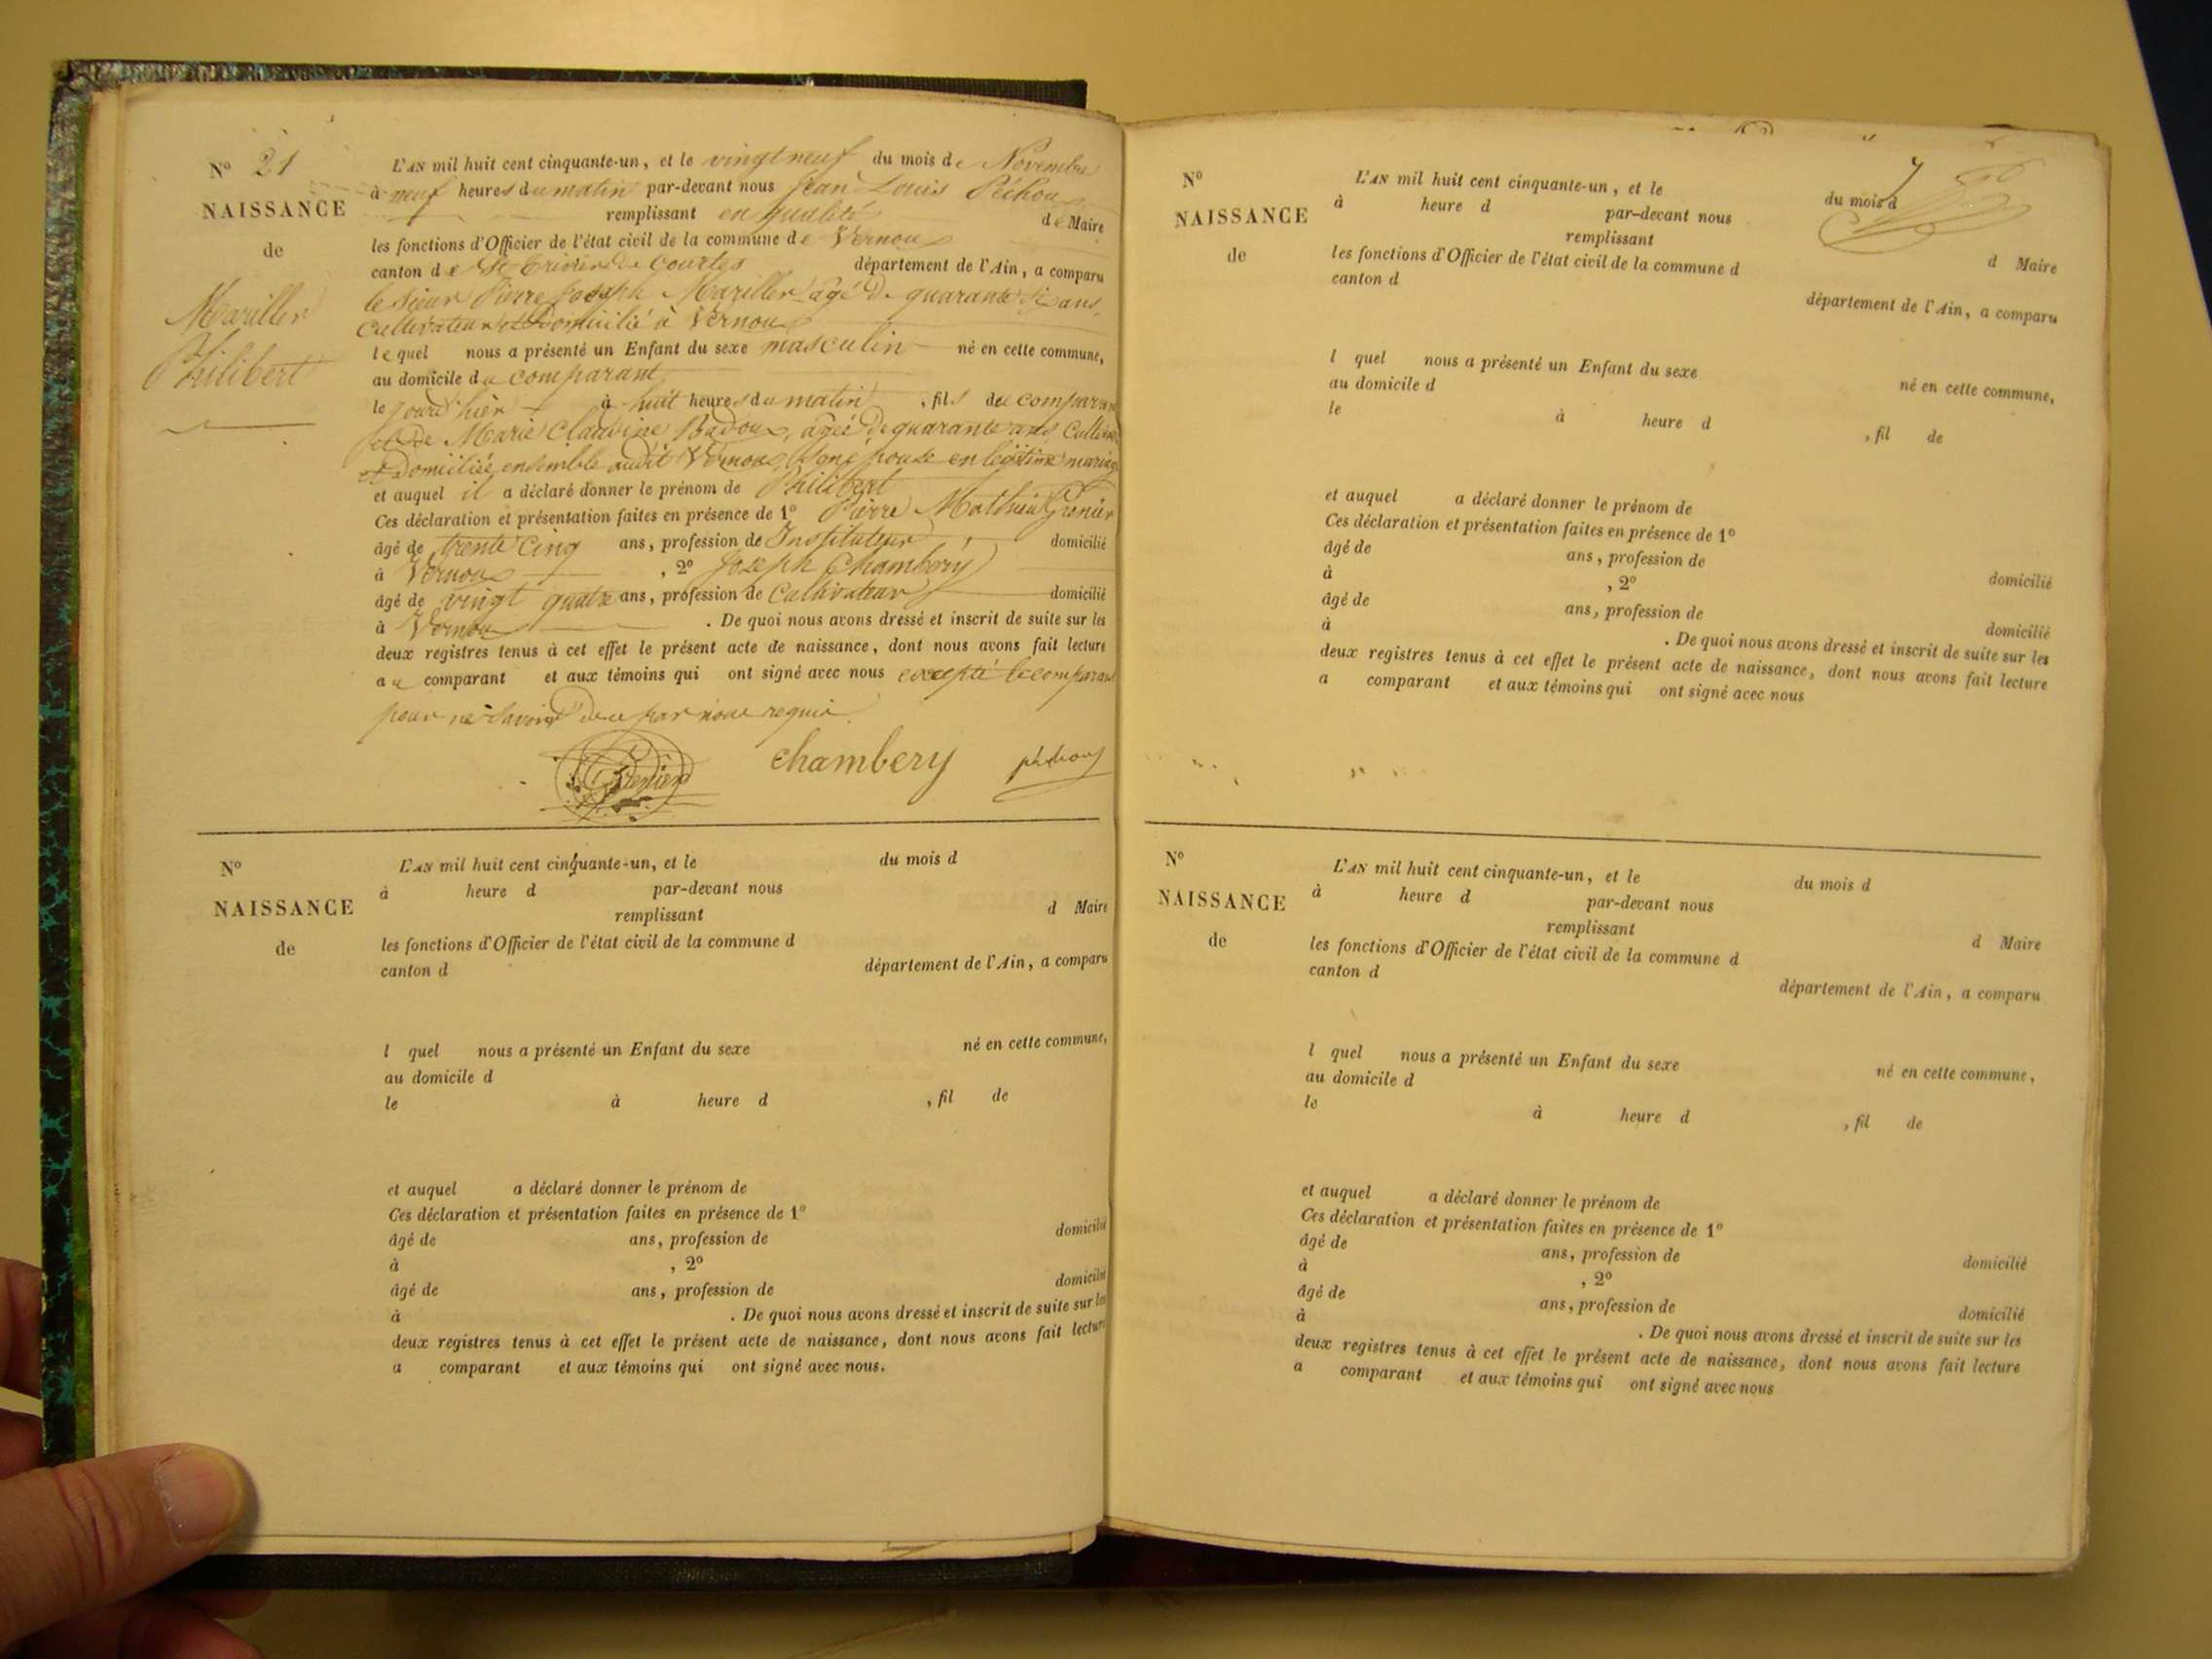 N° 21
NAISSANCE
de
Mariller
Philibert
L'AN mil huit cent cinquante-un, et le vingt neuf du mois de Novembre
à neuf heures du matin par-devant nous Jean Louis Péchoux
remplissant en qualité de Maire
les fonctions d'Officier de l'état civil de la commune de Vernoux
canton de St Trivier de Courtes département de l'Ain, a comparu
le sieur Pierre Joseph Mariller âgé de quarante six ans,
Cultivateur et Domicilié à Vernoux
lequel nous a présenté un Enfant du sexe masculin né en cette commune,
au domicile du comparant
le jourd'hier à huit heures du matin, fils du comparant
et de Marie Claudine Badoux, agée de quarante ans
et Domiciliée ensemble audit Vernoux, son épouse en légitime mariage
et auquel il a déclaré donner le prénom de Philibert
Ces déclaration et présentation faites en présence de 1° Pierre Mathieu Grenier
âgé de trente cinq ans, profession de Instituteur, domicilié
à Vernoux, 2° Joseph Chambery
âgé de vingt quatre ans, profession de Cultivateur domicilié
à Vernoux. De quoi nous avons dressé et inscrit de suite sur les
deux registres tenus à cet effet le présent acte de naissance, dont nous avons fait lecture
au comparant et aux témoins qui ont signé avec nous excepté le comparant
pour ne savoir de ce par nous requis.
Grenier chambery péchoux
N°
NAISSANCE
de
L'AN mil huit cent cinquante-un, et le du mois d
à heure d par-devant nous
remplissant d Maire
les fonctions d'Officier de l'état civil de la commune d
canton d département de l'Ain, a comparu
l quel nous a présenté un Enfant du sexe né en cette commune,
au domicile d
le à heure d , fil de
et auquel a déclaré donner le prénom de
Ces déclaration et présentation faites en présence de 1°
âgé de ans, profession de domicilié
à , 2°
âgé de ans, profession de domicilié
à . De quoi nous avons dressé et inscrit de suite sur les
deux registres tenus à cet effet le présent acte de naissance, dont nous avons fait lecture
a comparant et aux témoins qui ont signé avec nous.
7
N°
NAISSANCE
de
L'AN mil huit cent cinquante-un, et le du mois d
à heure d par-devant nous
remplissant d Maire
les fonctions d'Officier de l'état civil de la commune d
canton d département de l'Ain, a comparu
l quel nous a présenté un Enfant du sexe né en cette commune,
au domicile d
le à heure d , fil de
et auquel a déclaré donner le prénom de
Ces déclaration et présentation faites en présence de 1°
âgé de ans, profession de domicilié
à , 2°
âgé de ans, profession de domicilié
à . De quoi nous avons dressé et inscrit de suite sur les
deux registres tenus à cet effet le présent acte de naissance, dont nous avons fait lecture
a comparant et aux témoins qui ont signé avec nous
N°
NAISSANCE
de
L'AN mil huit cent cinquante-un, et le du mois d
à heure d par-devant nous
remplissant d Maire
les fonctions d'Officier de l'état civil de la commune d
canton d département de l'Ain, a comparu
l quel nous a présenté un Enfant du sexe né en cette commune,
au domicile d
le à heure d , fil de
et auquel a déclaré donner le prénom de
Ces déclaration et présentation faites en présence de 1°
âgé de ans, profession de domicilié
à , 2°
âgé de ans, profession de domicilié
à . De quoi nous avons dressé et inscrit de suite sur les
deux registres tenus à cet effet le présent acte de naissance, dont nous avons fait lecture
a comparant et aux témoins qui ont signé avec nous